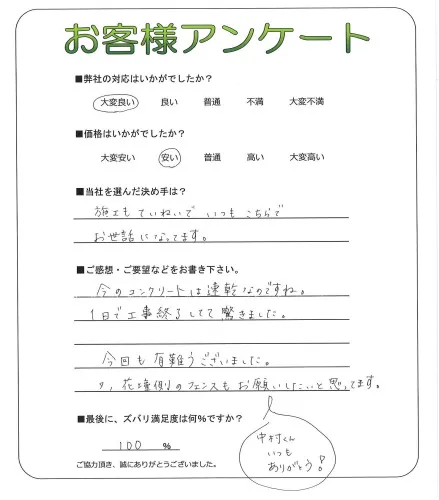 お客様アンケート
■弊社の対応はいかがでしたか?
大変良い 良い 普通 不満 大変不満
■価格はいかがでしたか?
大変安い 安い 普通 高い 大変高い
■当社を選んだ決め手は?
施工もていねいで いつも こちらで
お世話になってます。
■ご感想・ご要望などをお書き下さい。
今のコンクリートは速乾なのですね。
1日で工事終了してて驚きました。
今回も有難うございました。
花壇側のフェンスもお願いしたいと思ってます。
■最後に、ズバリ満足度は何%ですか?
100 %
ご協力頂き、誠にありがとうございました。
中村くん
いつも
ありがとう!